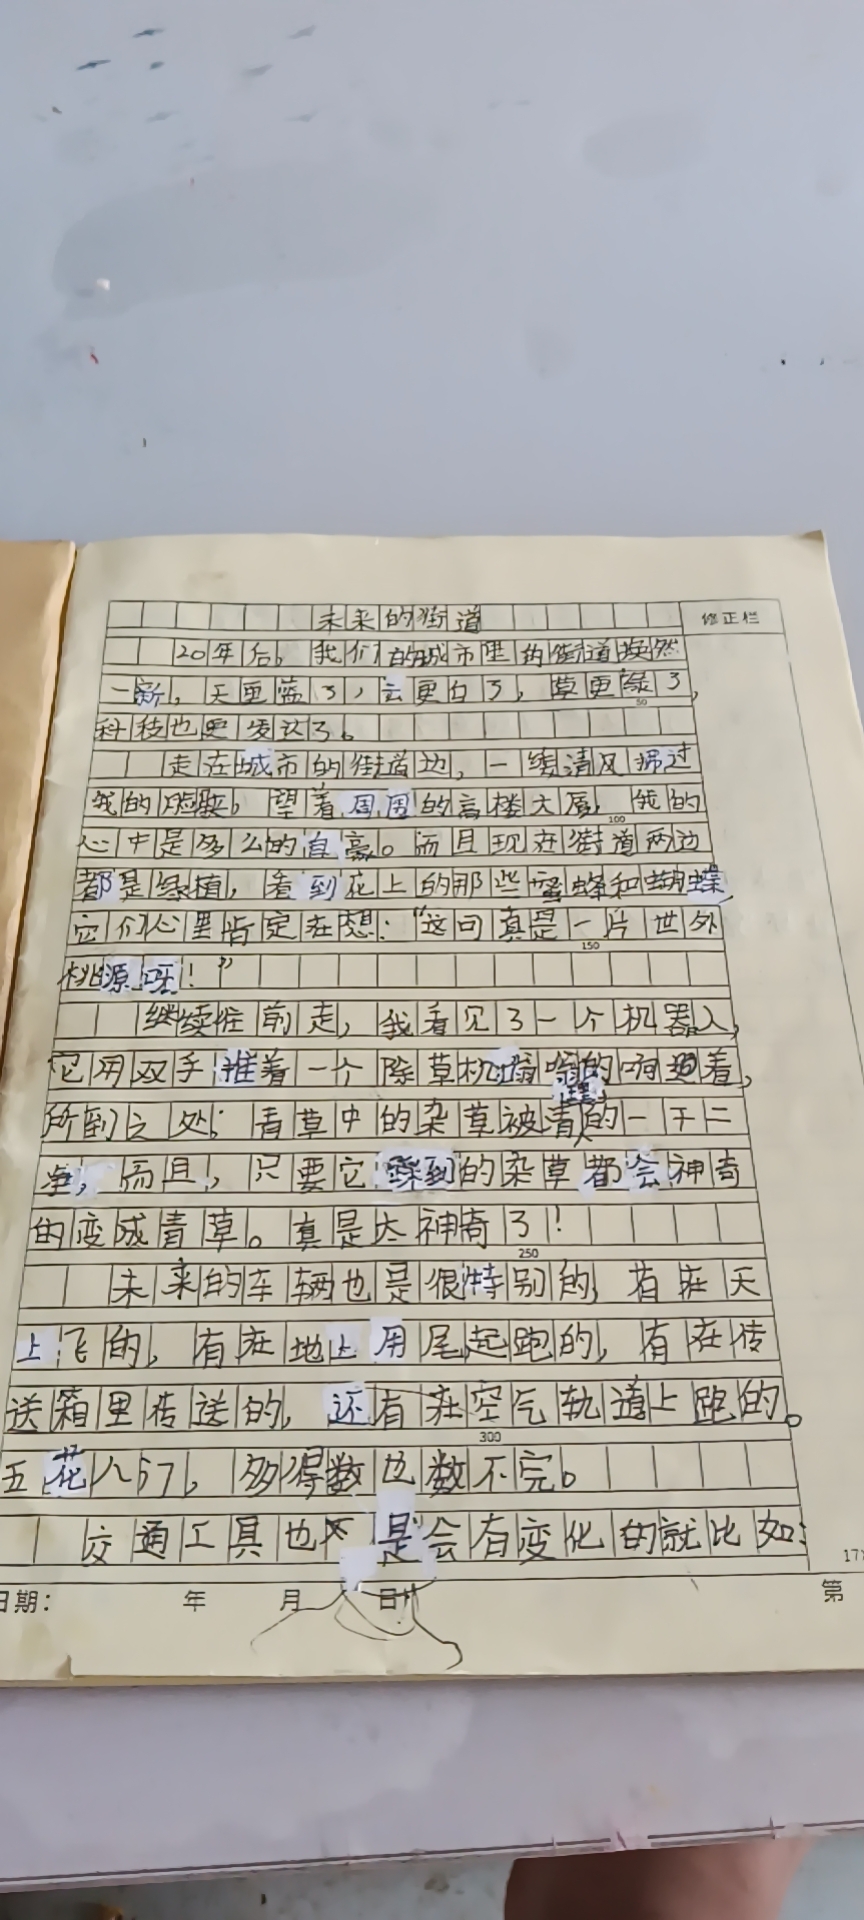 未来的街道
修正栏
20年后，我们的城市里的街道焕然
一新，天更蓝了，云更白了，草更绿了，
50
科技也更发达了。
走在城市的街道边，一缕清风拂过
我的脸颊，望着周围的高楼大厦，我的
100
心中是多么的自豪。而且现在街道两边
都是绿植，看到花上的那些蜜蜂和蝴蝶，
它们心里肯定在想：“这可真是一片世外
150
桃源呀！”
继续往前走，我看见了一个机器人，
它用双手推着一个除草机嗡嗡的响着，
所到之处，青草中的杂草被清理的一干二
净，而且，只要它踩到的杂草都会神奇
的变成青草。真是太神奇了！
250
未来的车辆也是很特别的，有在天
上飞的，有在地上用尾起跑的，有在传
送箱里传送的，还有在空气轨道上跑的。
300
五花八门，多得数也数不完。
交通工具也不是会有变化的就比如：
17
日期： 年 月 日
第